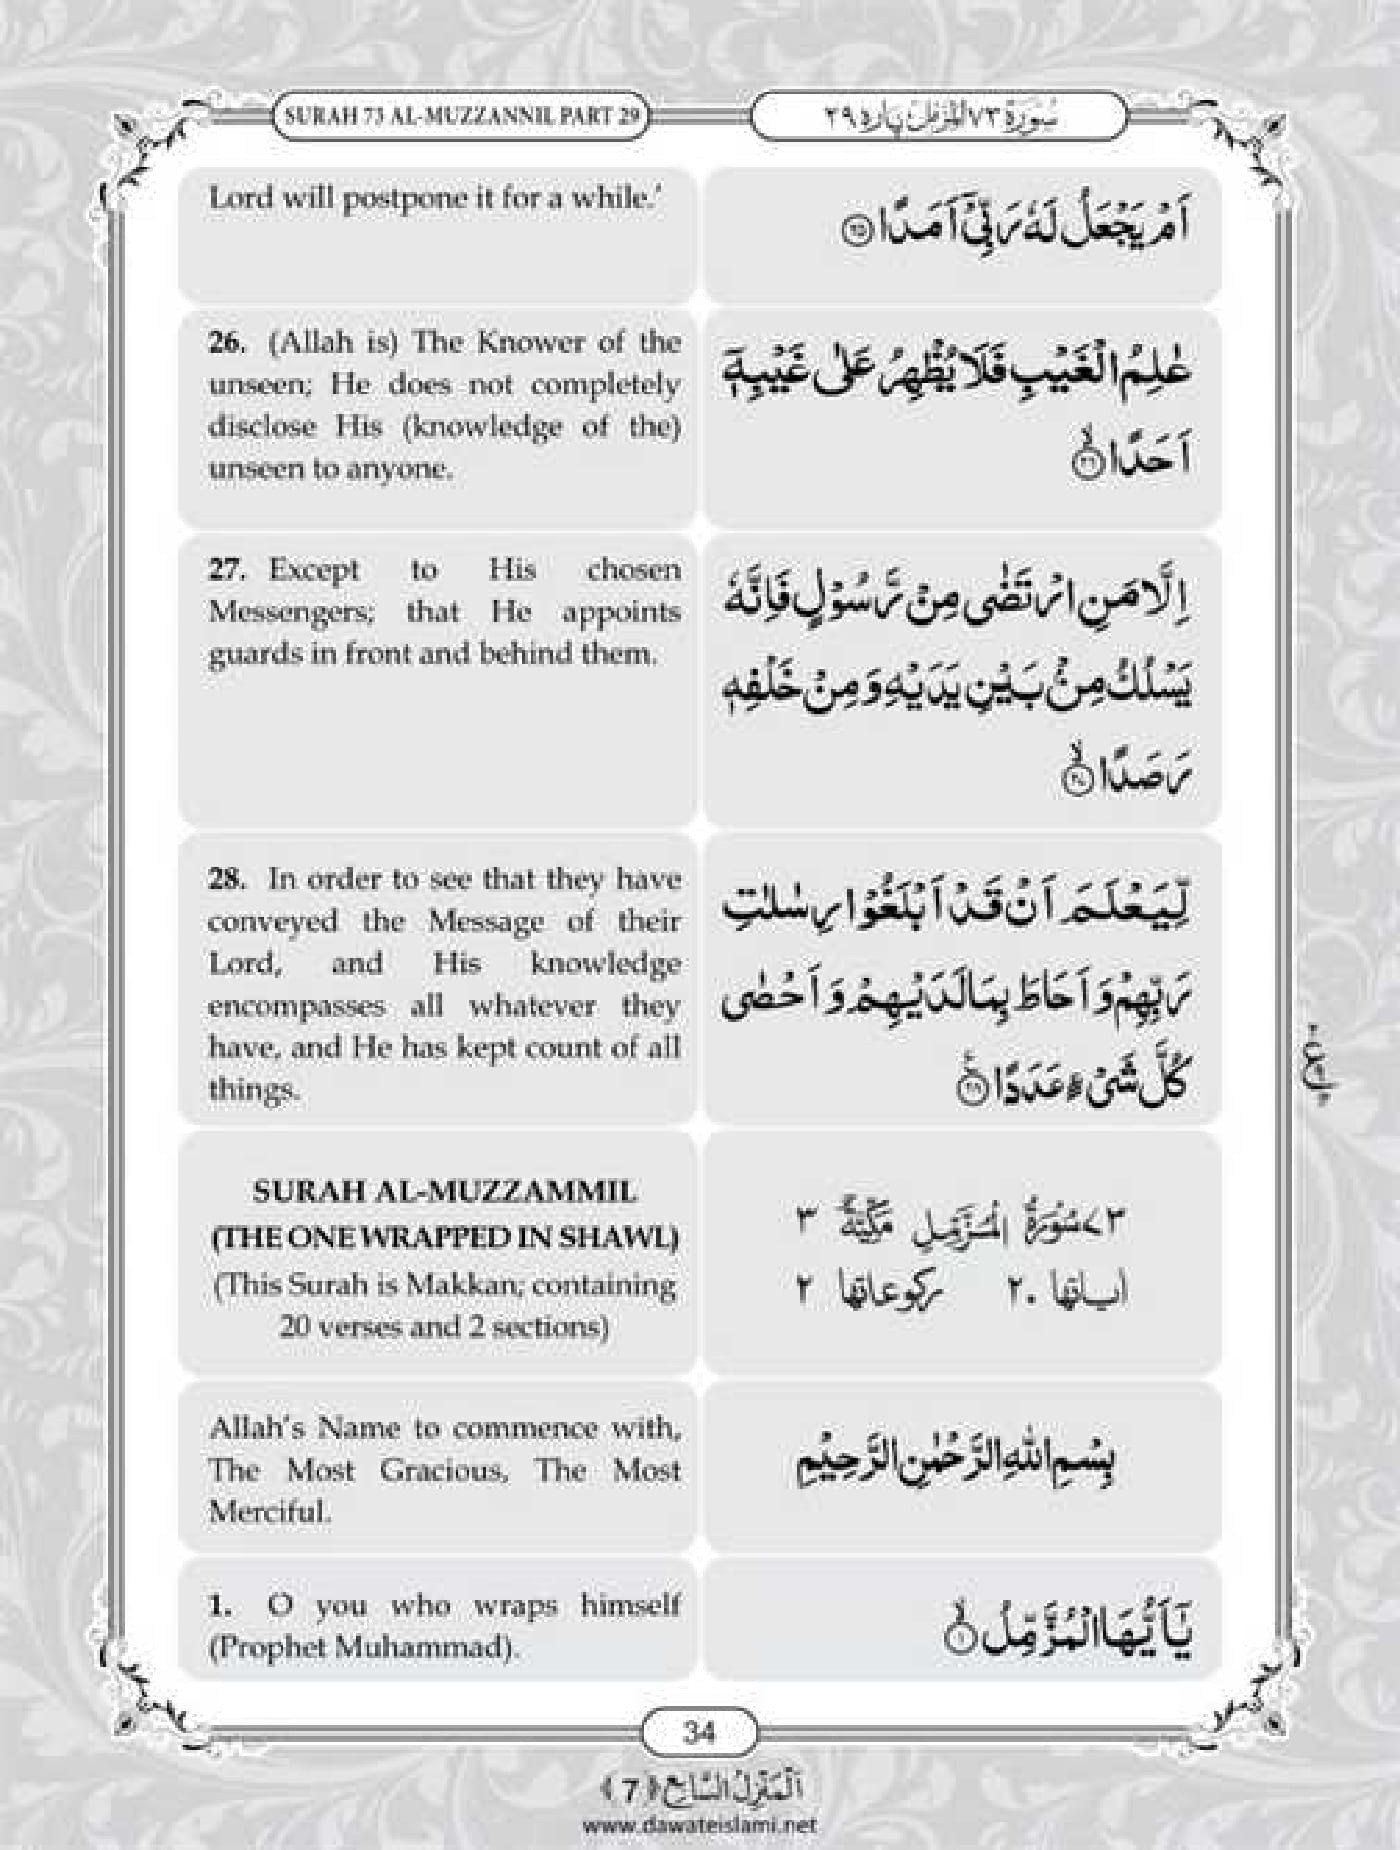 SURAH 73 AL-MUZZANNIL PART 29
سُوْرَة ٧٣ المُزمّل پارہ ٢٩
Lord will postpone it for a while.’
اَمْ یَجْعَلُ لَهٗ رَبِّیْۤ اَمَدًا ﴿۲۵﴾
26. (Allah is) The Knower of the
unseen; He does not completely
disclose His (knowledge of the)
unseen to anyone.
عٰلِمُ الْغَیْبِ فَلَا یُظْهِرُ عَلٰى غَیْبِهٖۤ
اَحَدًا ﴿ۙ۲۶﴾
27. Except to His chosen
Messengers; that He appoints
guards in front and behind them.
اِلَّا مَنِ ارْتَضٰى مِنْ رَّسُوْلٍ فَاِنَّهٗ
یَسْلُكُ مِنْۢ بَیْنِ یَدَیْهِ وَ مِنْ خَلْفِهٖ
رَصَدًا ﴿ۙ۲۷﴾
28. In order to see that they have
conveyed the Message of their
Lord, and His knowledge
encompasses all whatever they
have, and He has kept count of all
things.
لِّیَعْلَمَ اَنْ قَدْ اَبْلَغُوْا رِسٰلٰتِ
رَبِّهِمْ وَ اَحَاطَ بِمَا لَدَیْهِمْ وَ اَحْصٰى
كُلَّ شَیْءٍ عَدَدًا ﴿۲۸﴾
SURAH AL-MUZZAMMIL
(THE ONE WRAPPED IN SHAWL)
(This Surah is Makkan; containing
20 verses and 2 sections)
٧٣ سُوْرَةُ الْمُزَّمِّلِ مَكِّيَّةٌ ٣
اٰیاتها ٢٠ رکوعاتها ٢
Allah’s Name to commence with,
The Most Gracious, The Most
Merciful.
بِسْمِ اللهِ الرَّحْمٰنِ الرَّحِیْمِ
1. O you who wraps himself
(Prophet Muhammad).
یٰۤاَیُّهَا الْمُزَّمِّلُ ﴿ۙ۱﴾
34
اَلْمَنْزِلُ السَّابِع ﴿7﴾
www.dawateislami.net